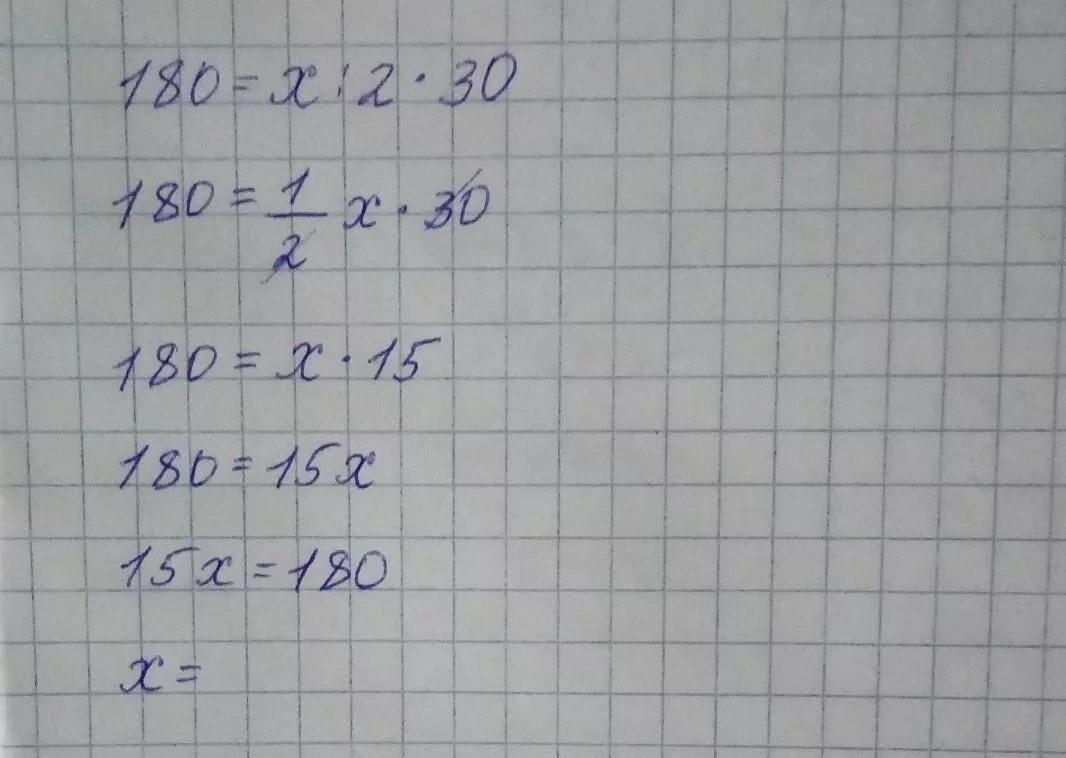 180 = x : 2 · 30
180 = 1/2 x · 30
180 = x · 15
180 = 15x
15x = 180
x =